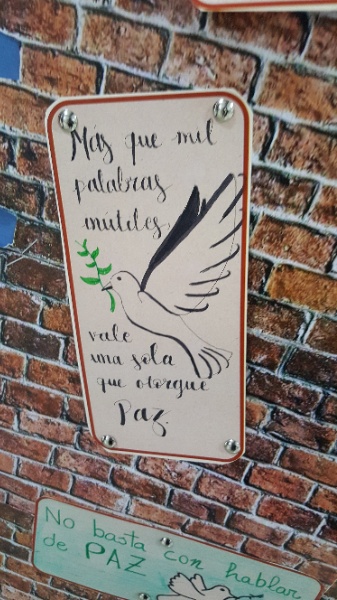 Más que mil
palabras
inútiles,
vale
una sola
que otorgue
Paz.
No basta con hablar
de PAZ